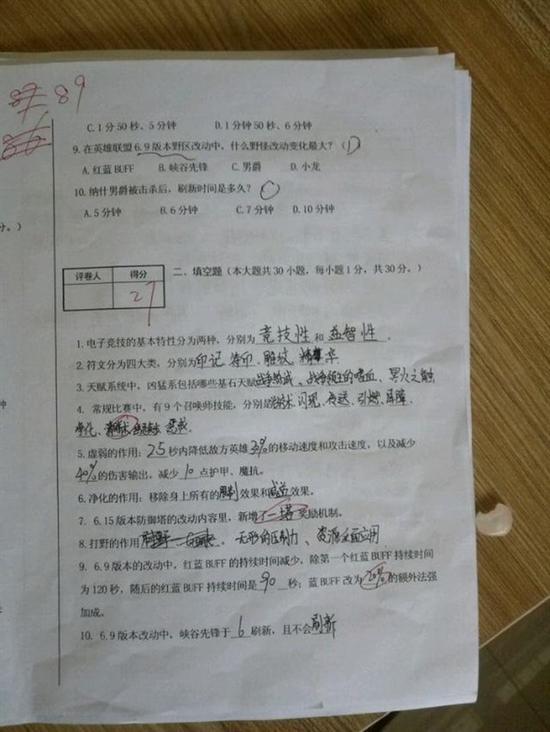 89
C.1 分 50 秒、5 分钟 D.1 分钟 50 秒、6 分钟
9. 在英雄联盟 6.9 版本野区改动中，什么野怪改动变化最大？（D）
A.红蓝 BUFF B.峡谷先锋 C.男爵 D.小龙
10. 纳什男爵被击杀后，刷新时间是多久？
A.5 分钟 B.6 分钟 C.7 分钟 D.10 分钟
分。）
评卷人 得分
27
二、填空题（本大题共 30 小题，每小题 1 分，共 30 分。）
1. 电子竞技的基本特性分为两种，分别为 竞技性 和 益智性 。
2. 符文分为四大类，分别为印记 符印、雕纹、精华
3. 天赋系统中，凶猛系包括哪些基石天赋 战争热诚、战争领主的嗜血、冥火之触
4. 常规比赛中，有 9 个召唤师技能，分别是 治疗术 闪现、传送、引燃、屏障、
净化、 惩戒
5. 虚弱的作用：2.5 秒内降低敌方英雄 30% 的移动速度和攻击速度，以及减少
40% 的伤害输出，减少 10 点护甲、魔抗。
6. 净化的作用：移除身上所有的 限制 效果和 减益 效果。
7. 6.15 版本防御塔的改动内容里，新增 一塔 奖励机制。
8. 打野的作用 、无形的压制力、资源全面应用
9. 6.9 版本的改动中，红蓝 BUFF 的持续时间减少，除第一个红蓝 BUFF 持续时间
为 120 秒，随后的红蓝 BUFF 持续时间是 90 秒；蓝 BUFF 改为 的额外法强
加成。
10. 6.9 版本改动中，峡谷先锋于 6 刷新，且不会 刷新